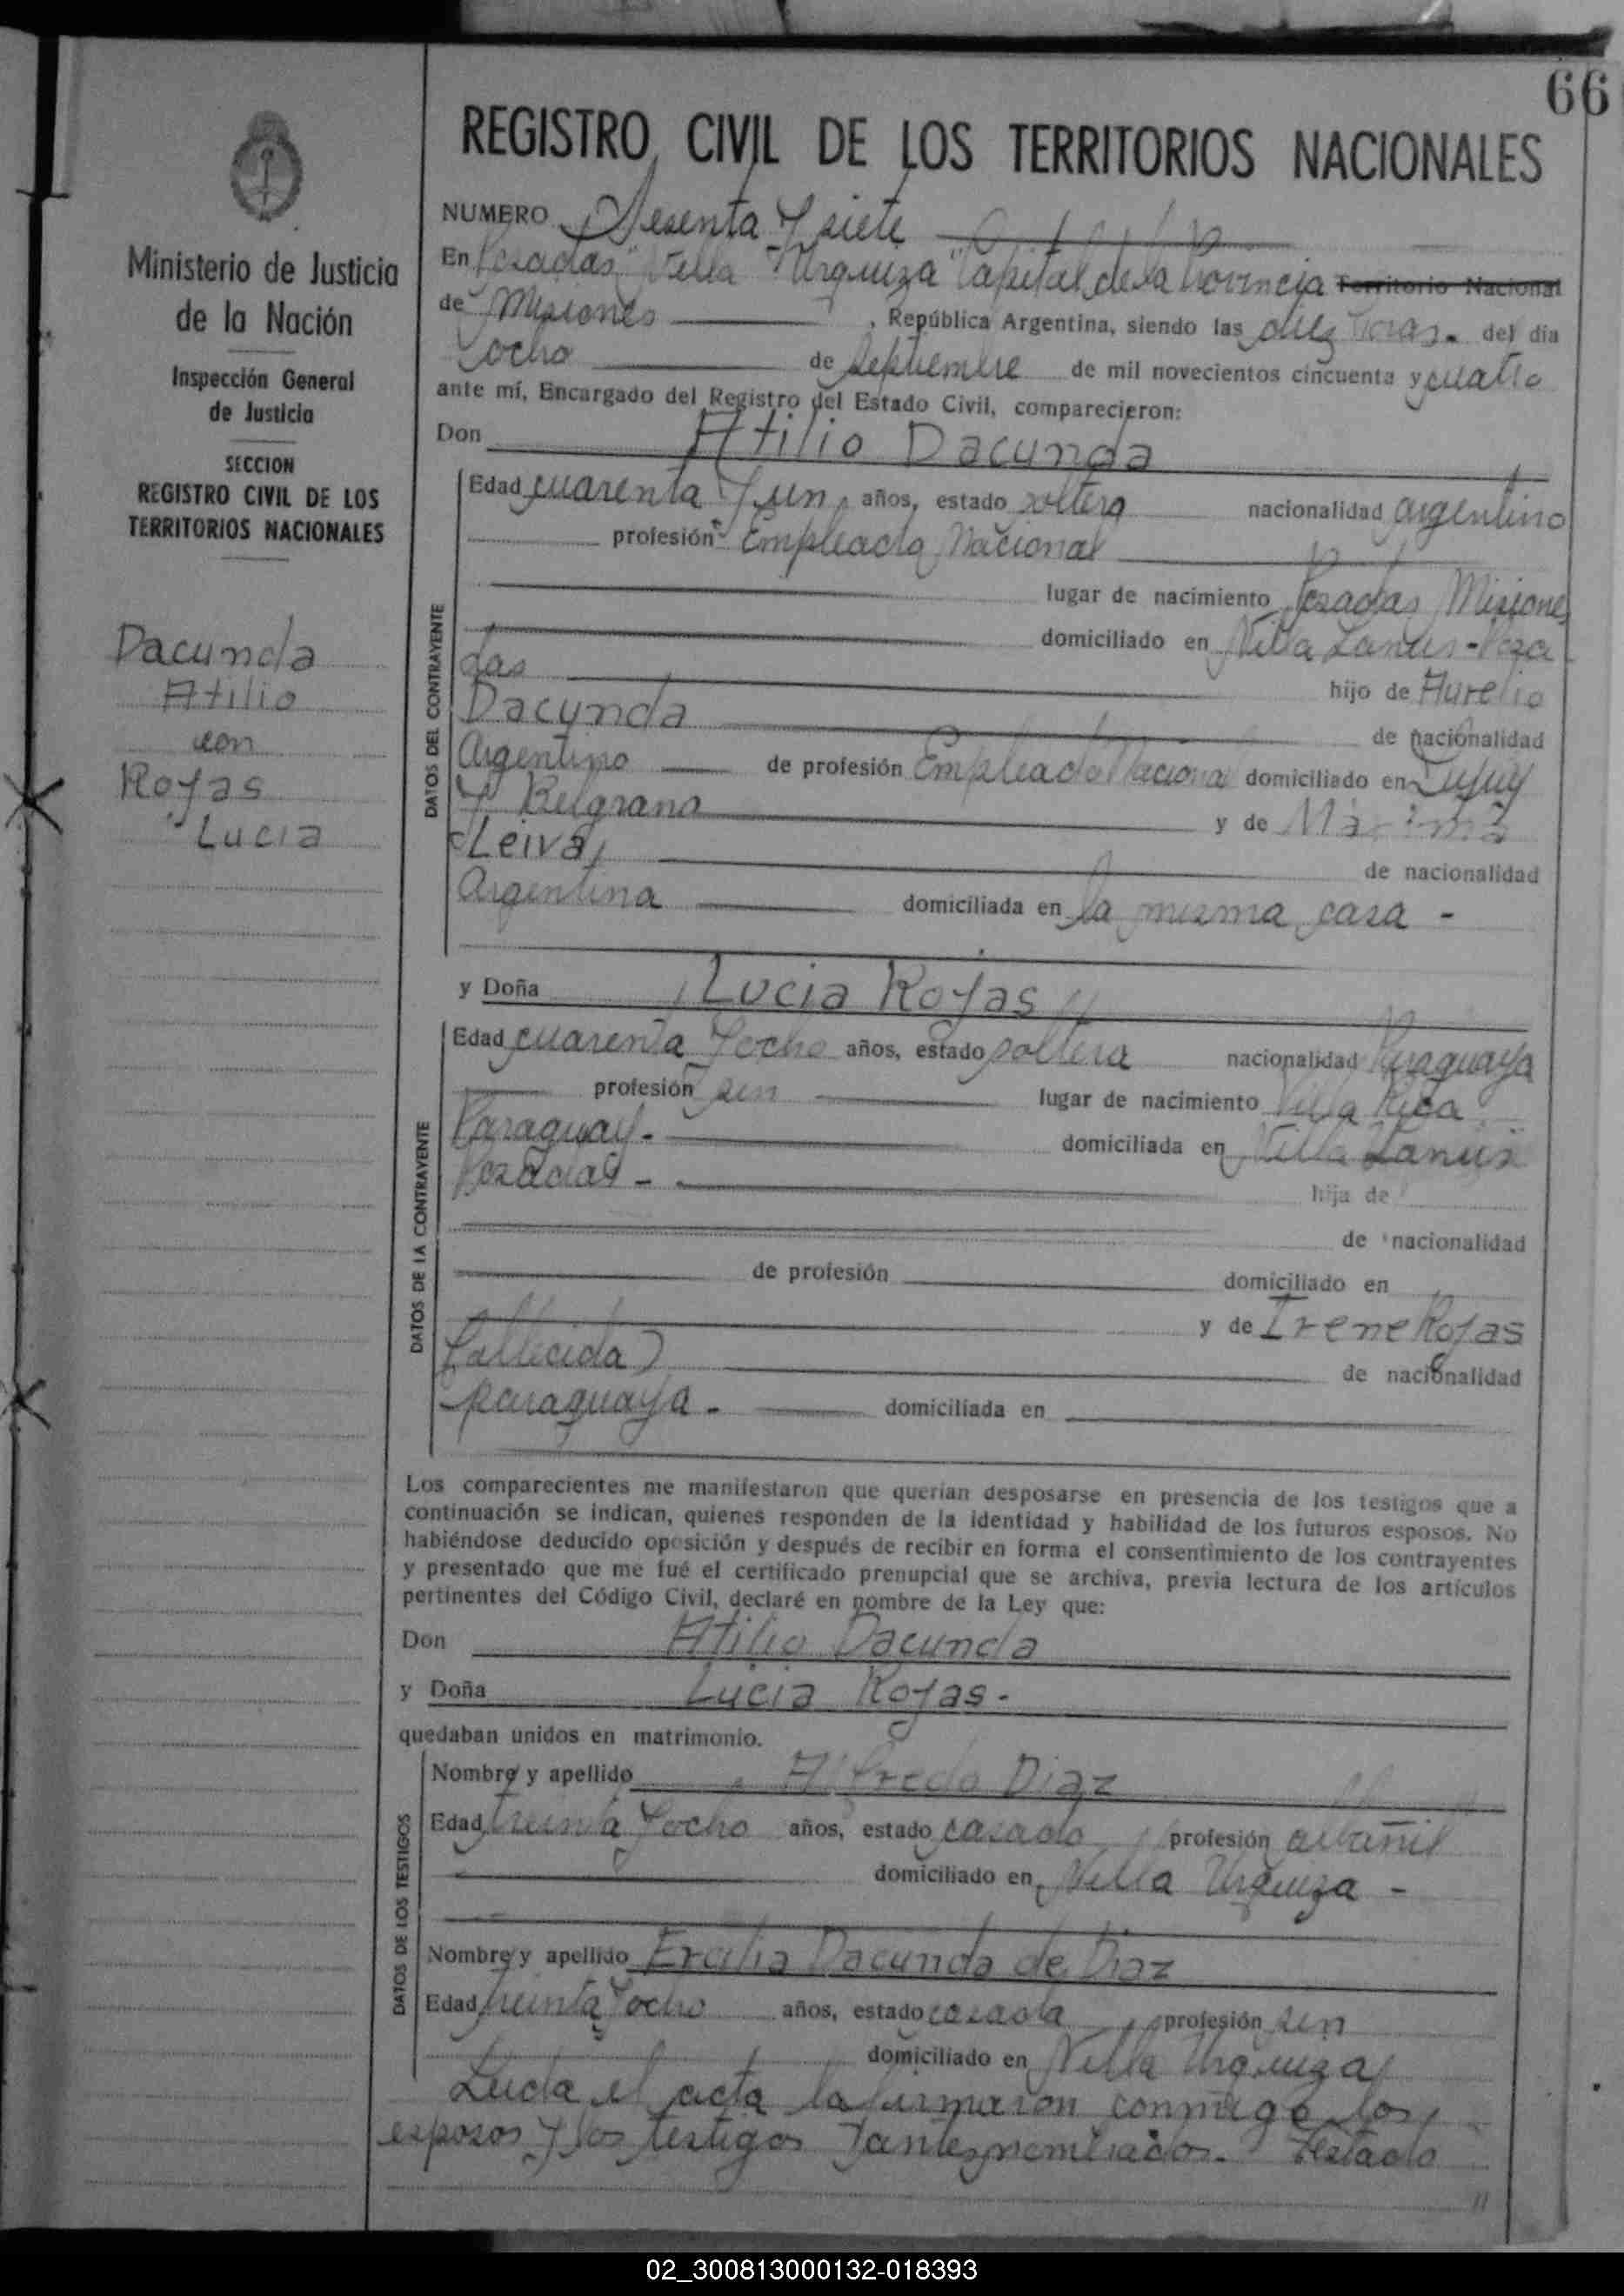 66
REGISTRO CIVIL DE LOS TERRITORIOS NACIONALES
Ministerio de Justicia
de la Nación
Inspección General
de Justicia
SECCION
REGISTRO CIVIL DE LOS
TERRITORIOS NACIONALES
Dacunda
Atilio
con
Rojas
Lucia
NUMERO Sesenta y siete
En Posadas "Villa Urquiza" Capital de la Provincia Territorio Nacional
de Misiones , República Argentina, siendo las diez horas. del día
ocho de Septiembre de mil novecientos cincuenta y cuatro
ante mí, Encargado del Registro del Estado Civil, comparecieron:
Don Atilio Dacunda
DATOS DEL CONTRAYENTE
Edad cuarenta y un años, estado soltero nacionalidad argentino
profesión Empleado Nacional
lugar de nacimiento Posadas Misiones
domiciliado en Villa Lanus - Posa
das hijo de Aurelio
Dacunda de nacionalidad
Argentino de profesión Empleado Nacional domiciliado en Jujuy
y Belgrano y de Maxima
Leiva, de nacionalidad
Argentina domiciliada en la misma casa -
y Doña Lucia Rojas
DATOS DE LA CONTRAYENTE
Edad cuarenta y ocho años, estado soltera nacionalidad Paraguaya
profesión sin lugar de nacimiento Villa Rica
Paraguay - domiciliada en Villa Lanus
Posadas - hija de
de nacionalidad
de profesión domiciliado en
y de Irene Rojas
(fallecida) de nacionalidad
paraguaya - domiciliada en
Los comparecientes me manifestaron que querían desposarse en presencia de los testigos que a
continuación se indican, quienes responden de la identidad y habilidad de los futuros esposos. No
habiéndose deducido oposición y después de recibir en forma el consentimiento de los contrayentes
y presentado que me fué el certificado prenupcial que se archiva, previa lectura de los artículos
pertinentes del Código Civil, declaré en nombre de la Ley que:
Don Atilio Dacunda
y Doña Lucia Rojas -
quedaban unidos en matrimonio.
DATOS DE LOS TESTIGOS
Nombre y apellido Alfredo Diaz
Edad treinta y ocho años, estado casado profesión albañil
domiciliado en Villa Urquiza -
Nombre y apellido Ercilia Dacunda de Diaz
Edad treinta y ocho años, estado casada profesión sin
domiciliado en Villa Urquiza
Leida el acta la firmaron conmigo los
esposos y los testigos antes nombrados. Testado
//
02_300813000132-018393